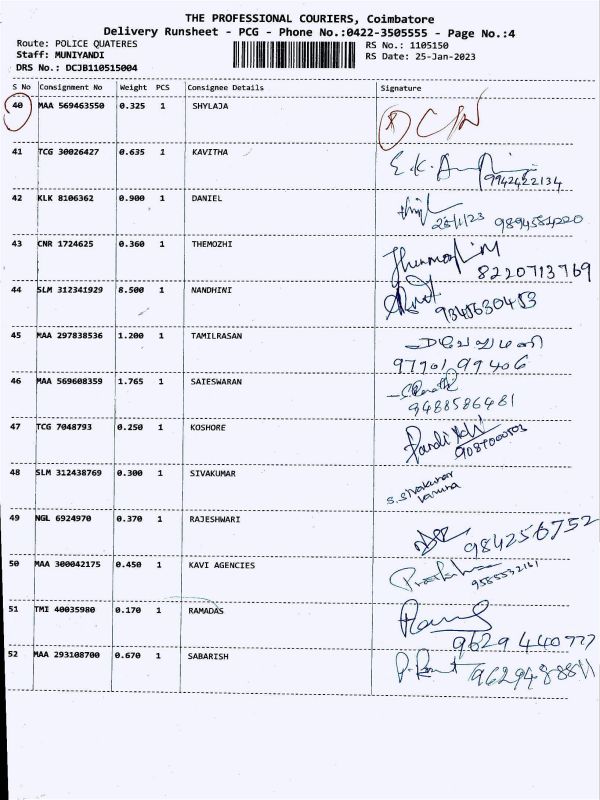 THE PROFESSIONAL COURIERS, Coimbatore
Delivery Runsheet - PCG - Phone No.:0422-3505555 - Page No.:4
Route: POLICE QUATERES RS No.: 1105150
Staff: MUNIYANDI RS Date: 25-Jan-2023
DRS No.: DCJB110515004
S No Consignment No Weight PCS Consignee Details Signature
40 MAA 569463550 0.325 1 SHYLAJA
41 TCG 30026427 0.635 1 KAVITHA
9942422134
42 KLK 8106362 0.900 1 DANIEL
43 CNR 1724625 0.360 1 THEMOZHI
8220713769
44 SLM 312341929 8.500 1 NANDHINI
9345630453
45 MAA 297838536 1.200 1 TAMILRASAN
97701 99406
46 MAA 569608359 1.765 1 SAIESWARAN
9488586481
47 TCG 7048793 0.250 1 KOSHORE
48 SLM 312438769 0.300 1 SIVAKUMAR
S. Sivakumar
49 NGL 6924970 0.370 1 RAJESHWARI
984256752
50 MAA 300042175 0.450 1 KAVI AGENCIES
51 TMI 40035980 0.170 1 RAMADAS
9629440777
52 MAA 293108700 0.670 1 SABARISH